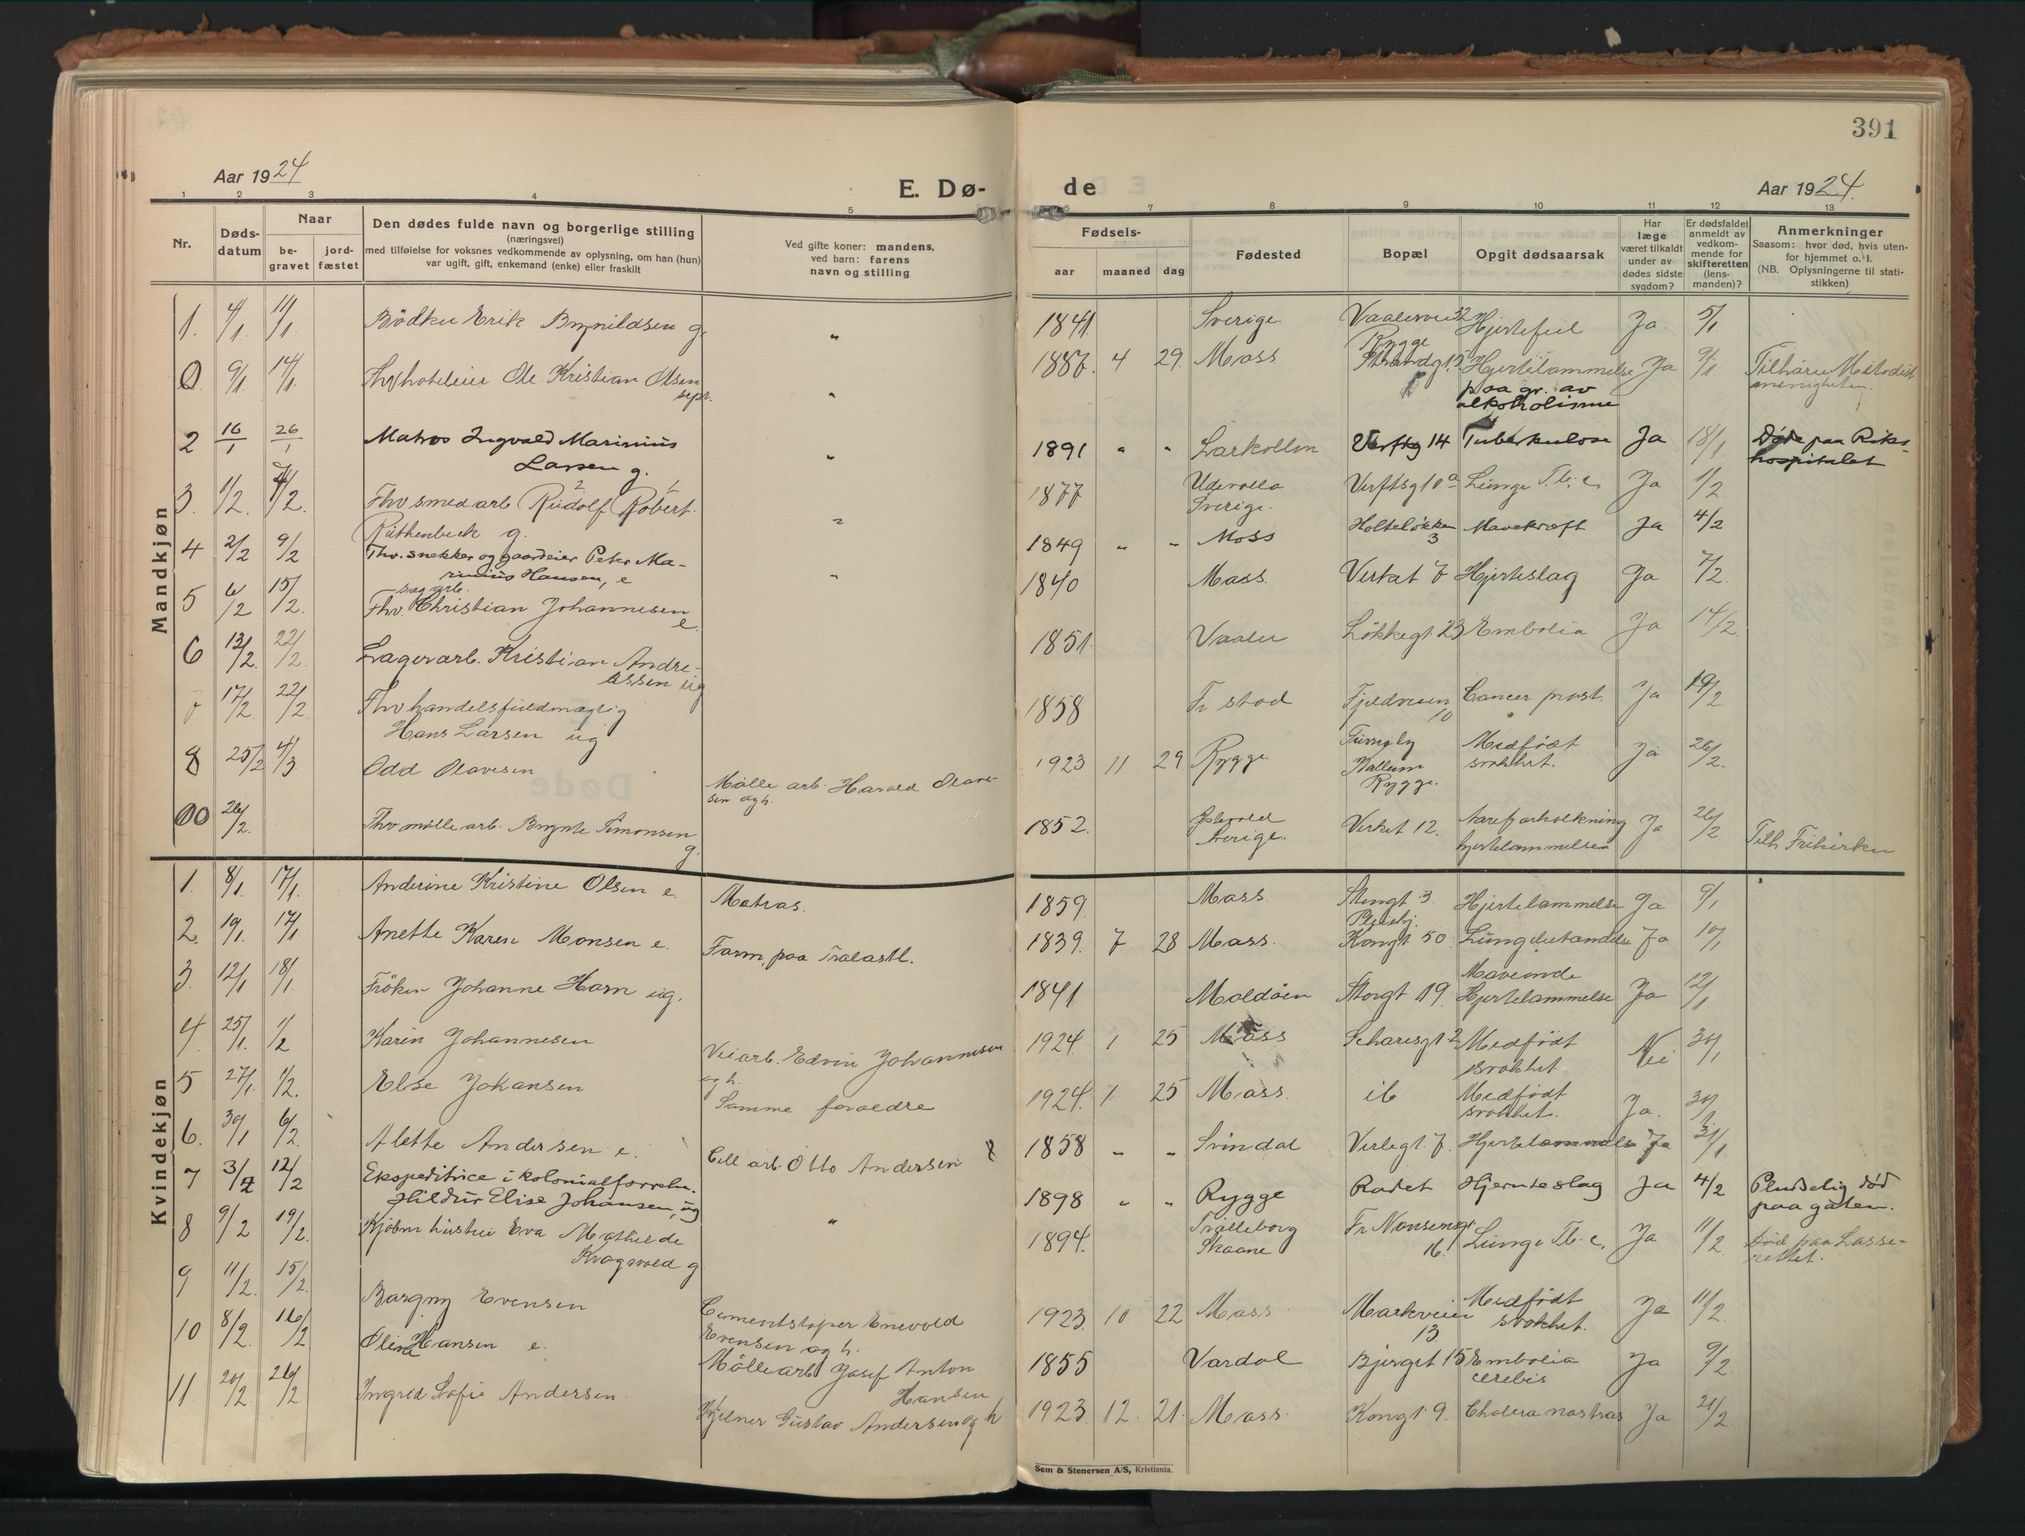 391
Aar 1924
E. Dø-
de
Aar 1924.
1 2 3 4 5 6 7 8 9 10 11 12 13
Nr.
Døds-
datum
Naar
be-
gravet
jord-
fæstet
Den dødes fulde navn og borgerlige stilling
(næringsvei)
med tilføielse for voksnes vedkommende av oplysning, om han (hun)
var ugift, gift, enkemand (enke) eller fraskilt
Ved gifte koner: mandens,
ved barn: farens
navn og stilling
Fødsels-
aar maaned dag
Fødested
Bopæl
Opgit dødsaarsak
Har
læge
været tilkaldt
under av
dødes sidste
sygdom?
Er dødsfaldet
anmeldt av
vedkom-
mende for
skifteretten
(lens-
manden)?
Anmerkninger
Saasom: hvor død, hvis uten-
for hjemmet o. l.
(NB. Oplysningerne til stati-
stikken)
Mandkjøn
1. 4/1 11/1 Bødker Erik Brynildsen g. " 1841 Sverige. Vaalerveien 32 Hjertefeil Ja. 5/1
Rygge
0 9/1 14/1 Fhv hoteleier Ole Kristian Olsen
sepr. " 1887. 4 29. Moss Strandgt. Hjertelammelse
paa gr. av
alkoholisme Ja 9/1 Tilhører Metodist
menigheten.
2 16/1 26/1 Matros Ingvald Marinius
Larsen g. " 1891 " " Larkollen Verftsg 14 Tuberkulose Ja 18/1 Døde paa Riks-
hospitalet
3. 1/2. 7/2. Fhv smedarb Rudolf Robert
Ruthenbeck g. " 1877 Udevalla
Sverige. Verftsg 10a Lunge Tb.c. Ja 1/2
4 2/2 9/2 Fhv. snekker og gaardeier Peter Ma-
rinius Hansen, e " 1849 " " Moss Holteløkken
3 Mavekræft Ja 4/2
5 6/2 15/2. Fhv. sag arb. Christian Johannesen
e. 1840 Moss. Verket 7 Hjerteslag Ja 7/2.
6 13/2. 22/2. Lagerarb. Kristian Andre-
assen ug 1851. Vaaler Løkkegt 23 Embolia Ja 14/2.
7 17/2. 22/2. Fhv handelsfuldmægtig
Hans Larsen ug 1858 Fr stad Fjeldveien
10 Cancer prost. Ja 19/2
8 25/2 4/3 Odd Olavesen Mølle arb. Harald Olave-
sen og h. 1923 11 29 Rygge Rygge. Medfødt
svakhet. Ja 26/2.
00 26/2. Fhv mølle arb. Brynte Simonsen
g. 1852. Sverige. Verket 12. Aareforkalkning
hjertelammelse Ja 26/2 Tilh Frikirken
Kvindekjøn
1. 8/1. 17/1. Anderine Kristine Olsen e. Matros. 1859. Moss. Storgt 3. Hjertelammelse Ja 9/1
2. 10/1. 17/1 Anette Karen Monsen e. Form. paa Tralastl. 1839. 7 28 Moss. Pleiehj.
Kongt 50 Lungebetændelse Ja 10/1
3. 12/1 18/1. Frøken Johanne Horn ug. 1841 Moldøen Storgt 19. Maveonde
Hjertelammelse Ja 12/1
4. 25/1. 1/2 Karin Johannesen Veiarb. Edvin Johannesen
og h. 1924. 1 25 Moss Medfødt
svakhet Nei 30/1
5 27/1. 1/2. Else Johansen Samme foreldre 1924. 1 25 Moss. ib Medfødt
svakhet. Ja. 30/1
6. 30/1 6/2 Alette Andersen e. Cell arb. Otto Andersen 1858 " " Svindal Verlegt 7. Hjertelammelse Ja 31/1
7 3/2 12/2 Ekspeditrice i kolonialforretn.
Hildur Elise Johansen, ug 1898 " " Rygge Rådet Hjerneslag Ja 4/2 Pludselig død
paa gaten.
8 9/2 19/2. Kjøbm hustru Eva Mathilde
Kragsvold g " 1894. Trølleborg
Skaane Fr Nansensgt
16. Lunge Tb.c. Ja 11/2 Død paa Lasse-
rettet.
9 11/2. 15/2. Borgny Evensen Cementstøper Enevold
Evensen og h. 1923. 10 22 Moss. Markveien
13. Medfødt
svakhet. Ja 11/2.
10 8/2. 16/2 Olina Hansen e. Møllearb Josef Anton
Hansen 1855 Vardal Bjerget 15 Embolia
cerebis Ja 9/2.
11 20/2. 26/2. Ingrid Sofie Andersen. Kjelner Gustav Andersen og h 1923. 12. 21. Moss. Kongt. 9. Cholera nostras Ja 21/2.
Sem & Stenersen A/S, Kristiania.